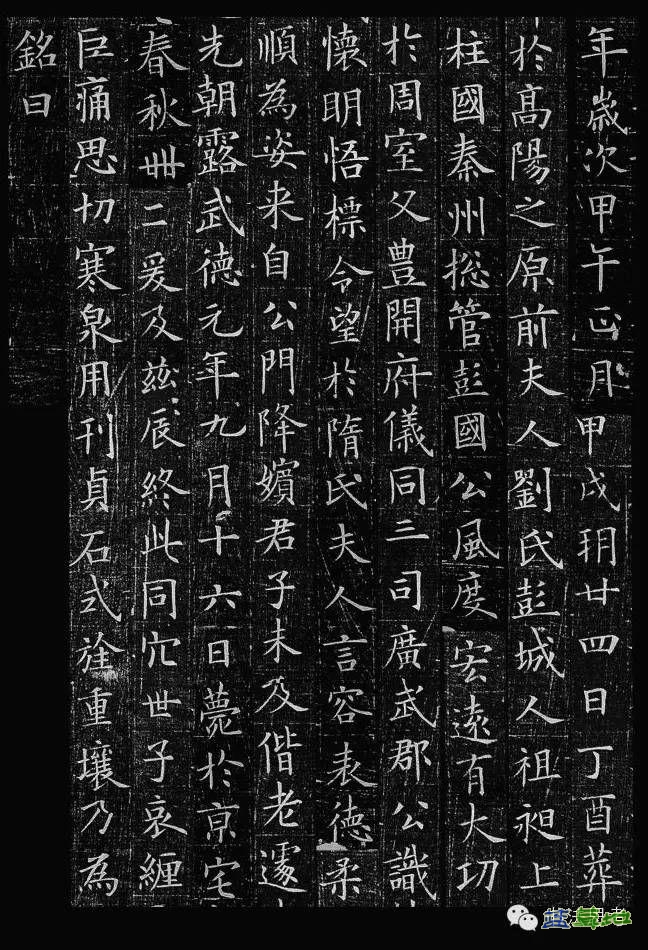 年歲次甲午正月甲戌玥廿四日丁酉葬
於高陽之原前夫人劉氏彭城人祖昶上
柱國秦州揔管彭國公風度宏遠有大功
於周室父豊開府儀同三司廣武郡公識
懷明悟標令望於隋氏夫人言容表德柔
順為姿来自公門降嬪君子未及偕老遽
先朝露武德元年九月十六日薨於京宅
春秋卌二爰及兹辰終此同穴世子哀纏
巨痛思切寒泉用刊貞石式旌重壤乃為
銘曰